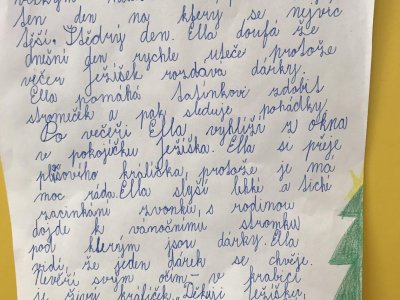 ten den na který se nejvíc
těší. Štědrý den. Ella doufá že
dnešní den rychle uteče protože
večer ježíšek rozdává dárky.
Ella pomáhá tatínkovi zdobit
stromeček a pak sleduje pohádky.
Po večeři Ella, vyhlíží z okna
v pokojíčku ježíška. Ella si přeje
plyšového králíčka, protože je má
moc ráda. Ella slyší lehké a tiché
zacinkání zvonku, s rodinou
dojde k vánočnímu stromku
pod kterým jsou dárky. Ella
vidí, že jeden dárek se chvěje.
Nevěří svým očím – v krabici
je živý králíček. "Děkuji ježíšku,